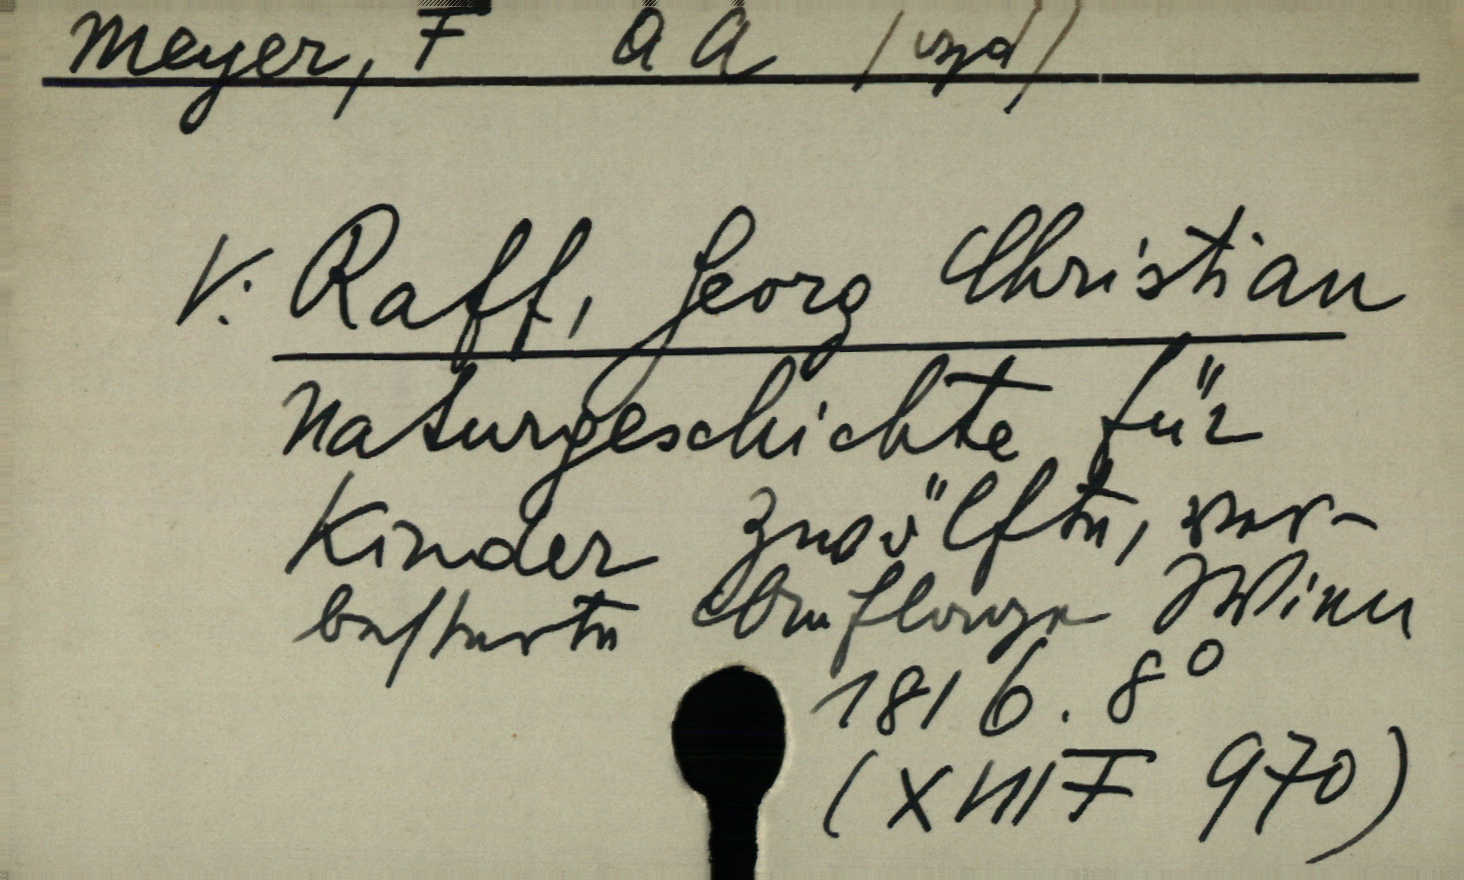 Meyer, F A A (Hgr)
V: Raff, Georg Christian
Naturgeschichte für
Kinder zwölfte, ver-
besserte Auflage Wien
1816. 8°
(XVIII F 970)